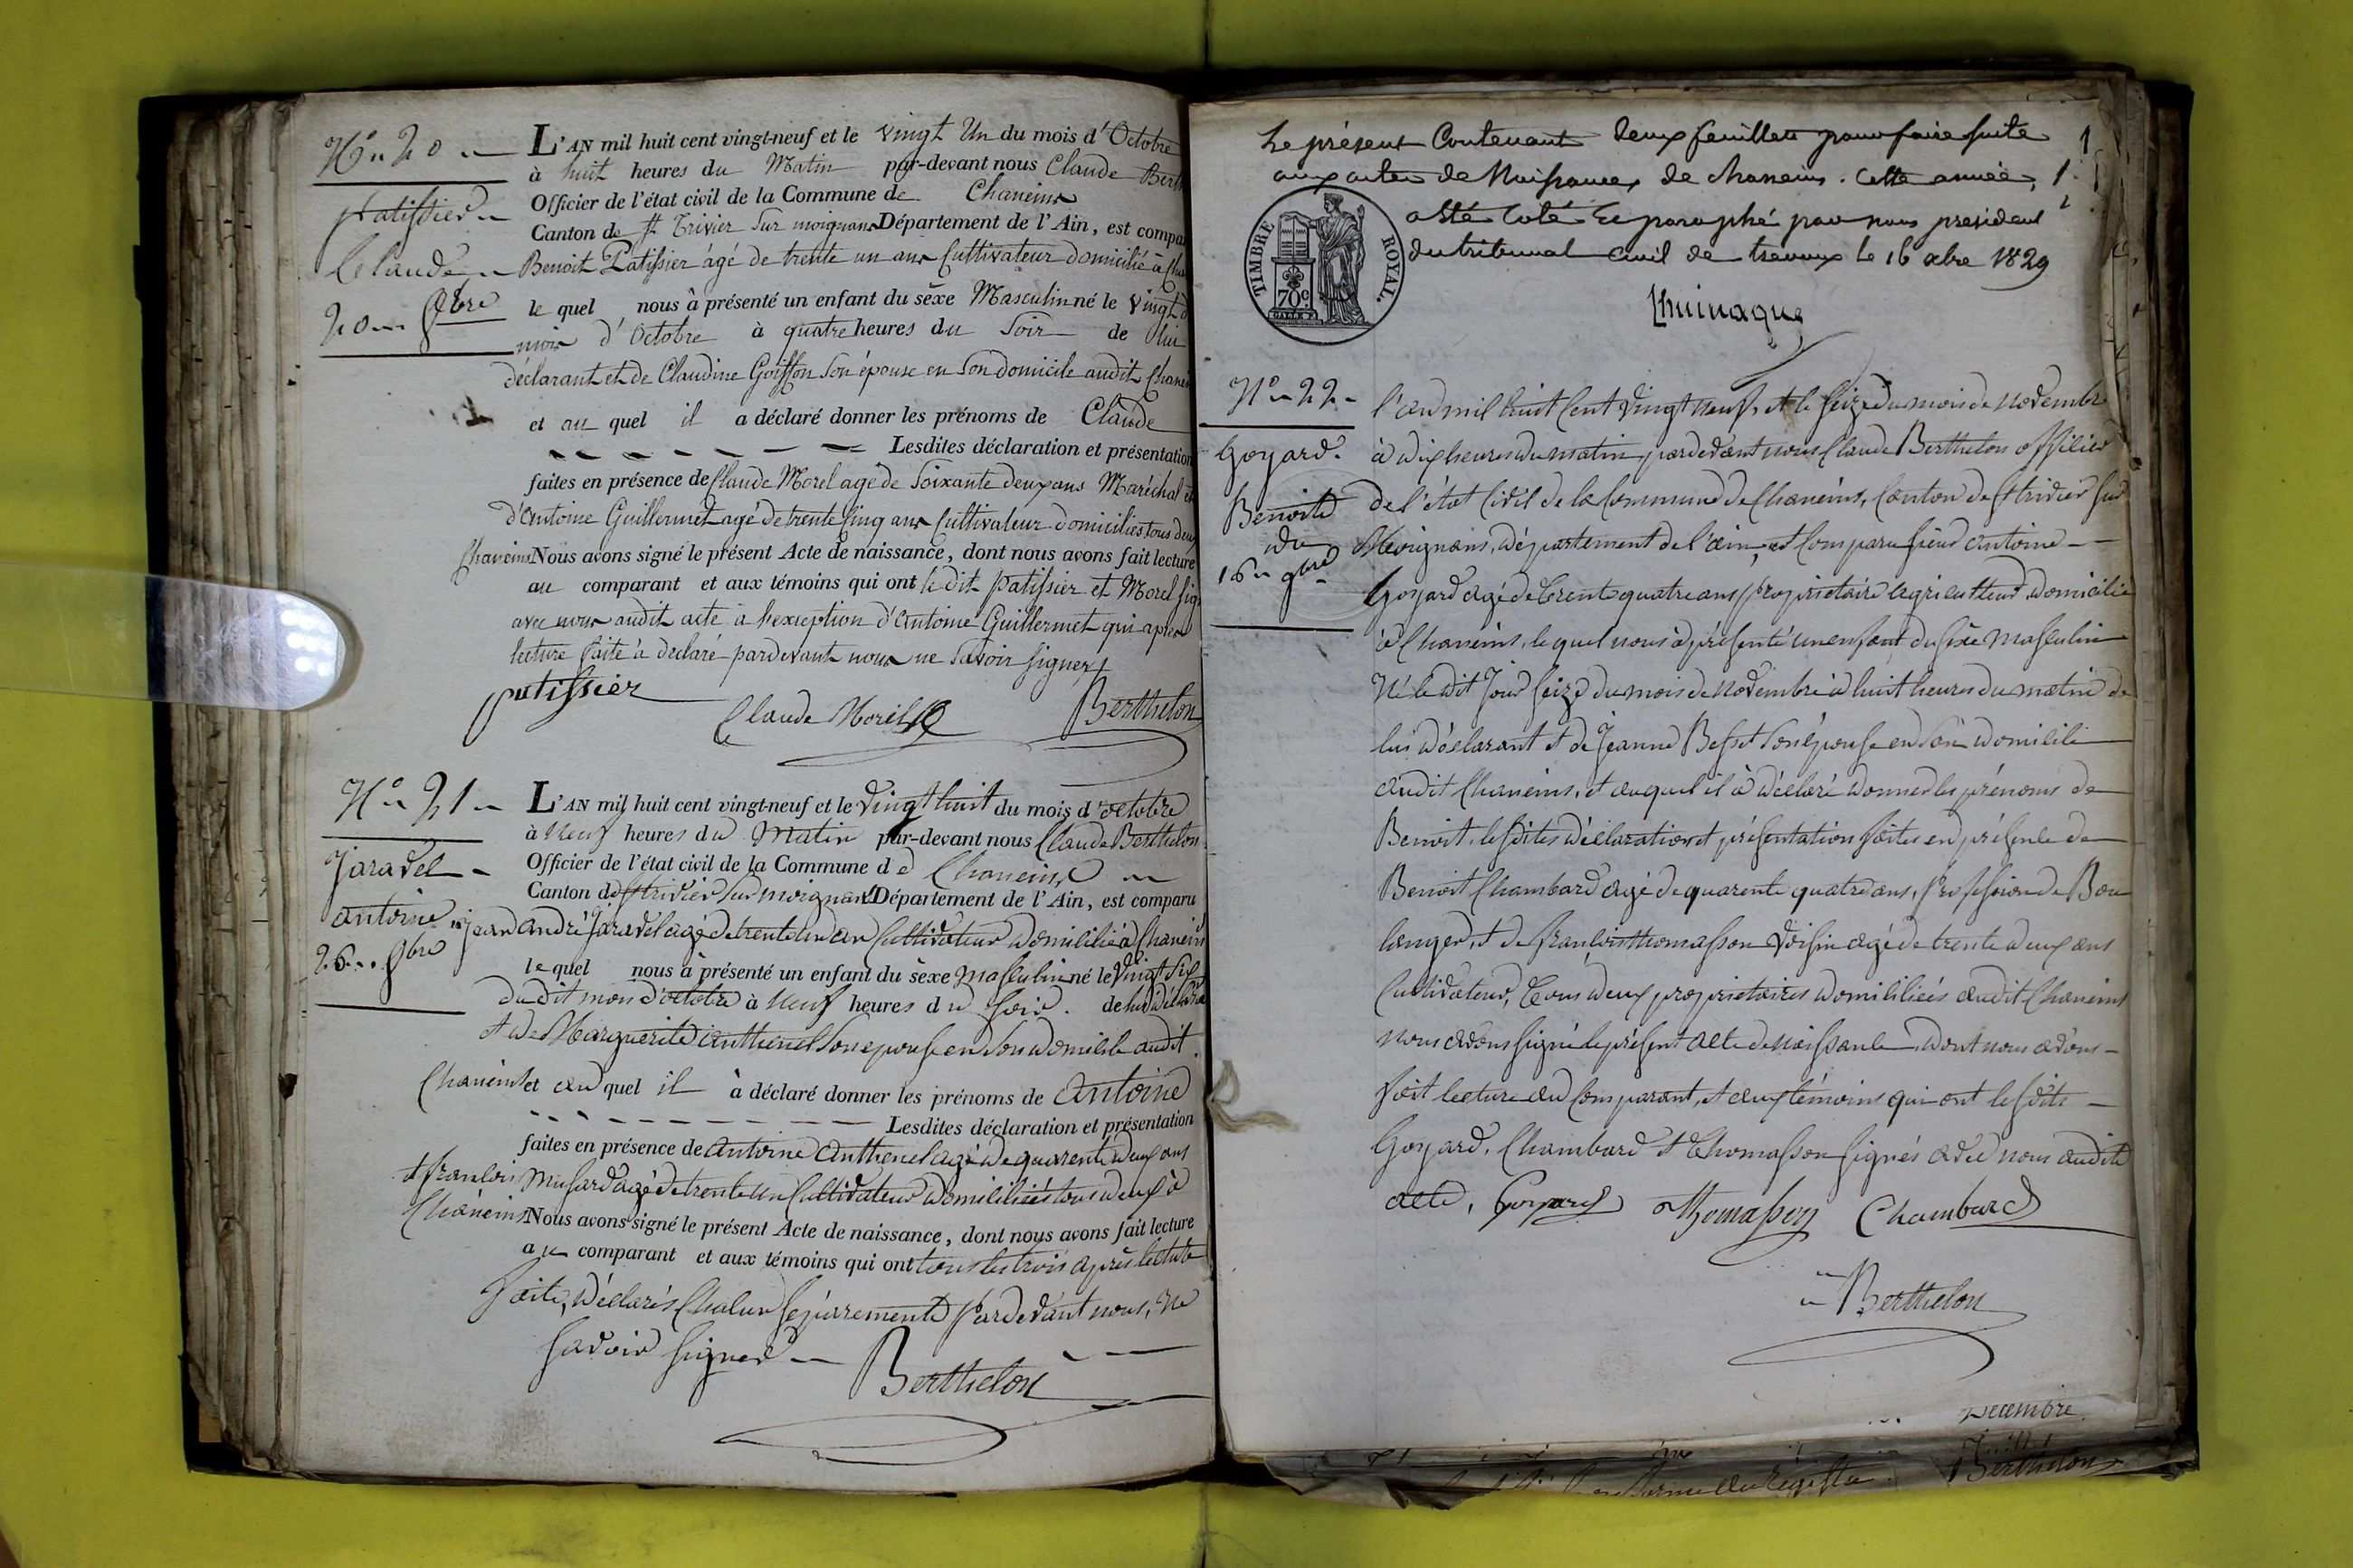 N.° 20
Patissier
Claude
20 8bre
L'AN mil huit cent vingt-neuf et le vingt Un du mois d'Octobre
à huit heures du Matin par-devant nous Claude Berth
Officier de l'état civil de la Commune de Chaneins
Canton de St Trivier Sur moignans Département de l'Ain, est compa
Benoit Patissier âgé de trente un ans Cultivateur domicilié à Cha
le quel nous à présenté un enfant du sèxe Masculin né le vingt d
mois d'Octobre à quatre heures du Soir de lui
déclarant et de Claudine Goiffon Son épouse en Son domicile audit Chanei
et au quel il a déclaré donner les prénoms de Claude
Lesdites déclaration et présentation
faites en présence de Claude Morel agé de Soixante deux ans Maréchal et
d'Antoine Guillermet agé de trente Cinq ans Cultivateur domiciliés tous deux
Chaneins Nous avons signé le présent Acte de naissance, dont nous avons fait lecture
au comparant et aux témoins qui ont le dit Patissier et Morel sig
avec nous audit acte à l'exception d'Antoine Guillermet qui après
lecture faite à déclaré pardevant nous ne Savoir signer
patissier
Claude Morel
Berthelon
N.° 21
Jaravel
antoine
26 8bre
L'AN mil huit cent vingt-neuf et le Vingt huit du mois d'octobre
à Neuf heures du Matin par-devant nous Claude Berthelon
Officier de l'état civil de la Commune de Chaneins
Canton de St trivier Sur moignans Département de l'Ain, est comparu
jean andré Jaravel agé de trente un an Cultivateur domicilié à Chaneins
le quel nous à présenté un enfant du sèxe masculin né le Vingt Six
du dit mois d'octobre à Neuf heures du Soir. de lui déclarant
et de Marguerite anthenel Son épouse en Son domicile audit
Chaneins et au quel il à déclaré donner les prénoms de Antoine
Lesdites déclaration et présentation
faites en présence de Antoine Anthenel agé de quarente deux ans
et francois Musard agé de trente un Cultivateurs domiciliés tous deux à
Chaneins Nous avons signé le présent Acte de naissance, dont nous avons fait lecture
au comparant et aux témoins qui ont tous les trois après lecture
faite, déclarés Chacun Séparement pardevant nous, ne
Savoir Signer
Berthelon
Le présent Contenant deux feuillets pour faire suite
aux actes de Naissances de chaneins. cette année,
a été coté et paraphé par nous president
du tribunal civil de trevoux le 16 9bre 1829
TIMBRE ROYAL.
70c
N.° 22
Goyard
Benoit
du
16 9bre
l'an mil huit Cent Vingt neuf, et le Seize du mois de novembre
à dix heures du matin pardevant nous Claude Berthelon officier
de l'état Civil de la Commune de Chaneins, Canton de St trivier Sur
Moignans, département de l'ain, est Comparu Sieur Antoine
Goyard agé de trente quatre ans, propriétaire agriculteur domicilié
à Chaneins, le quel nous à présenté un enfant du sèxe masculin
Né le dit Jour Seize du mois de novembre à huit heures du matin de
lui déclarant et de Jeanne Besset Son épouse en Son domicile
audit Chaneins, et auquel il à déclaré donner les prénoms de
Benoit, les dites déclaration et présentation faites en présence de
Benoit Chambard agé de quarente quatre ans, profession de Bou
langer, et de francois thomasson Voisin agé de trente deux ans
Cultivateur, tous deux proprietaires domiciliés audit Chaneins
nous avons signé le présent acte de naissance, dont nous avons
fait lecture au Comparant, et aux témoins qui ont les dits
Goyard, Chambard et Thomasson signés avec nous audit
acte, Goyard Thomasson Chambard
Berthelon
Decembre
Berthelon